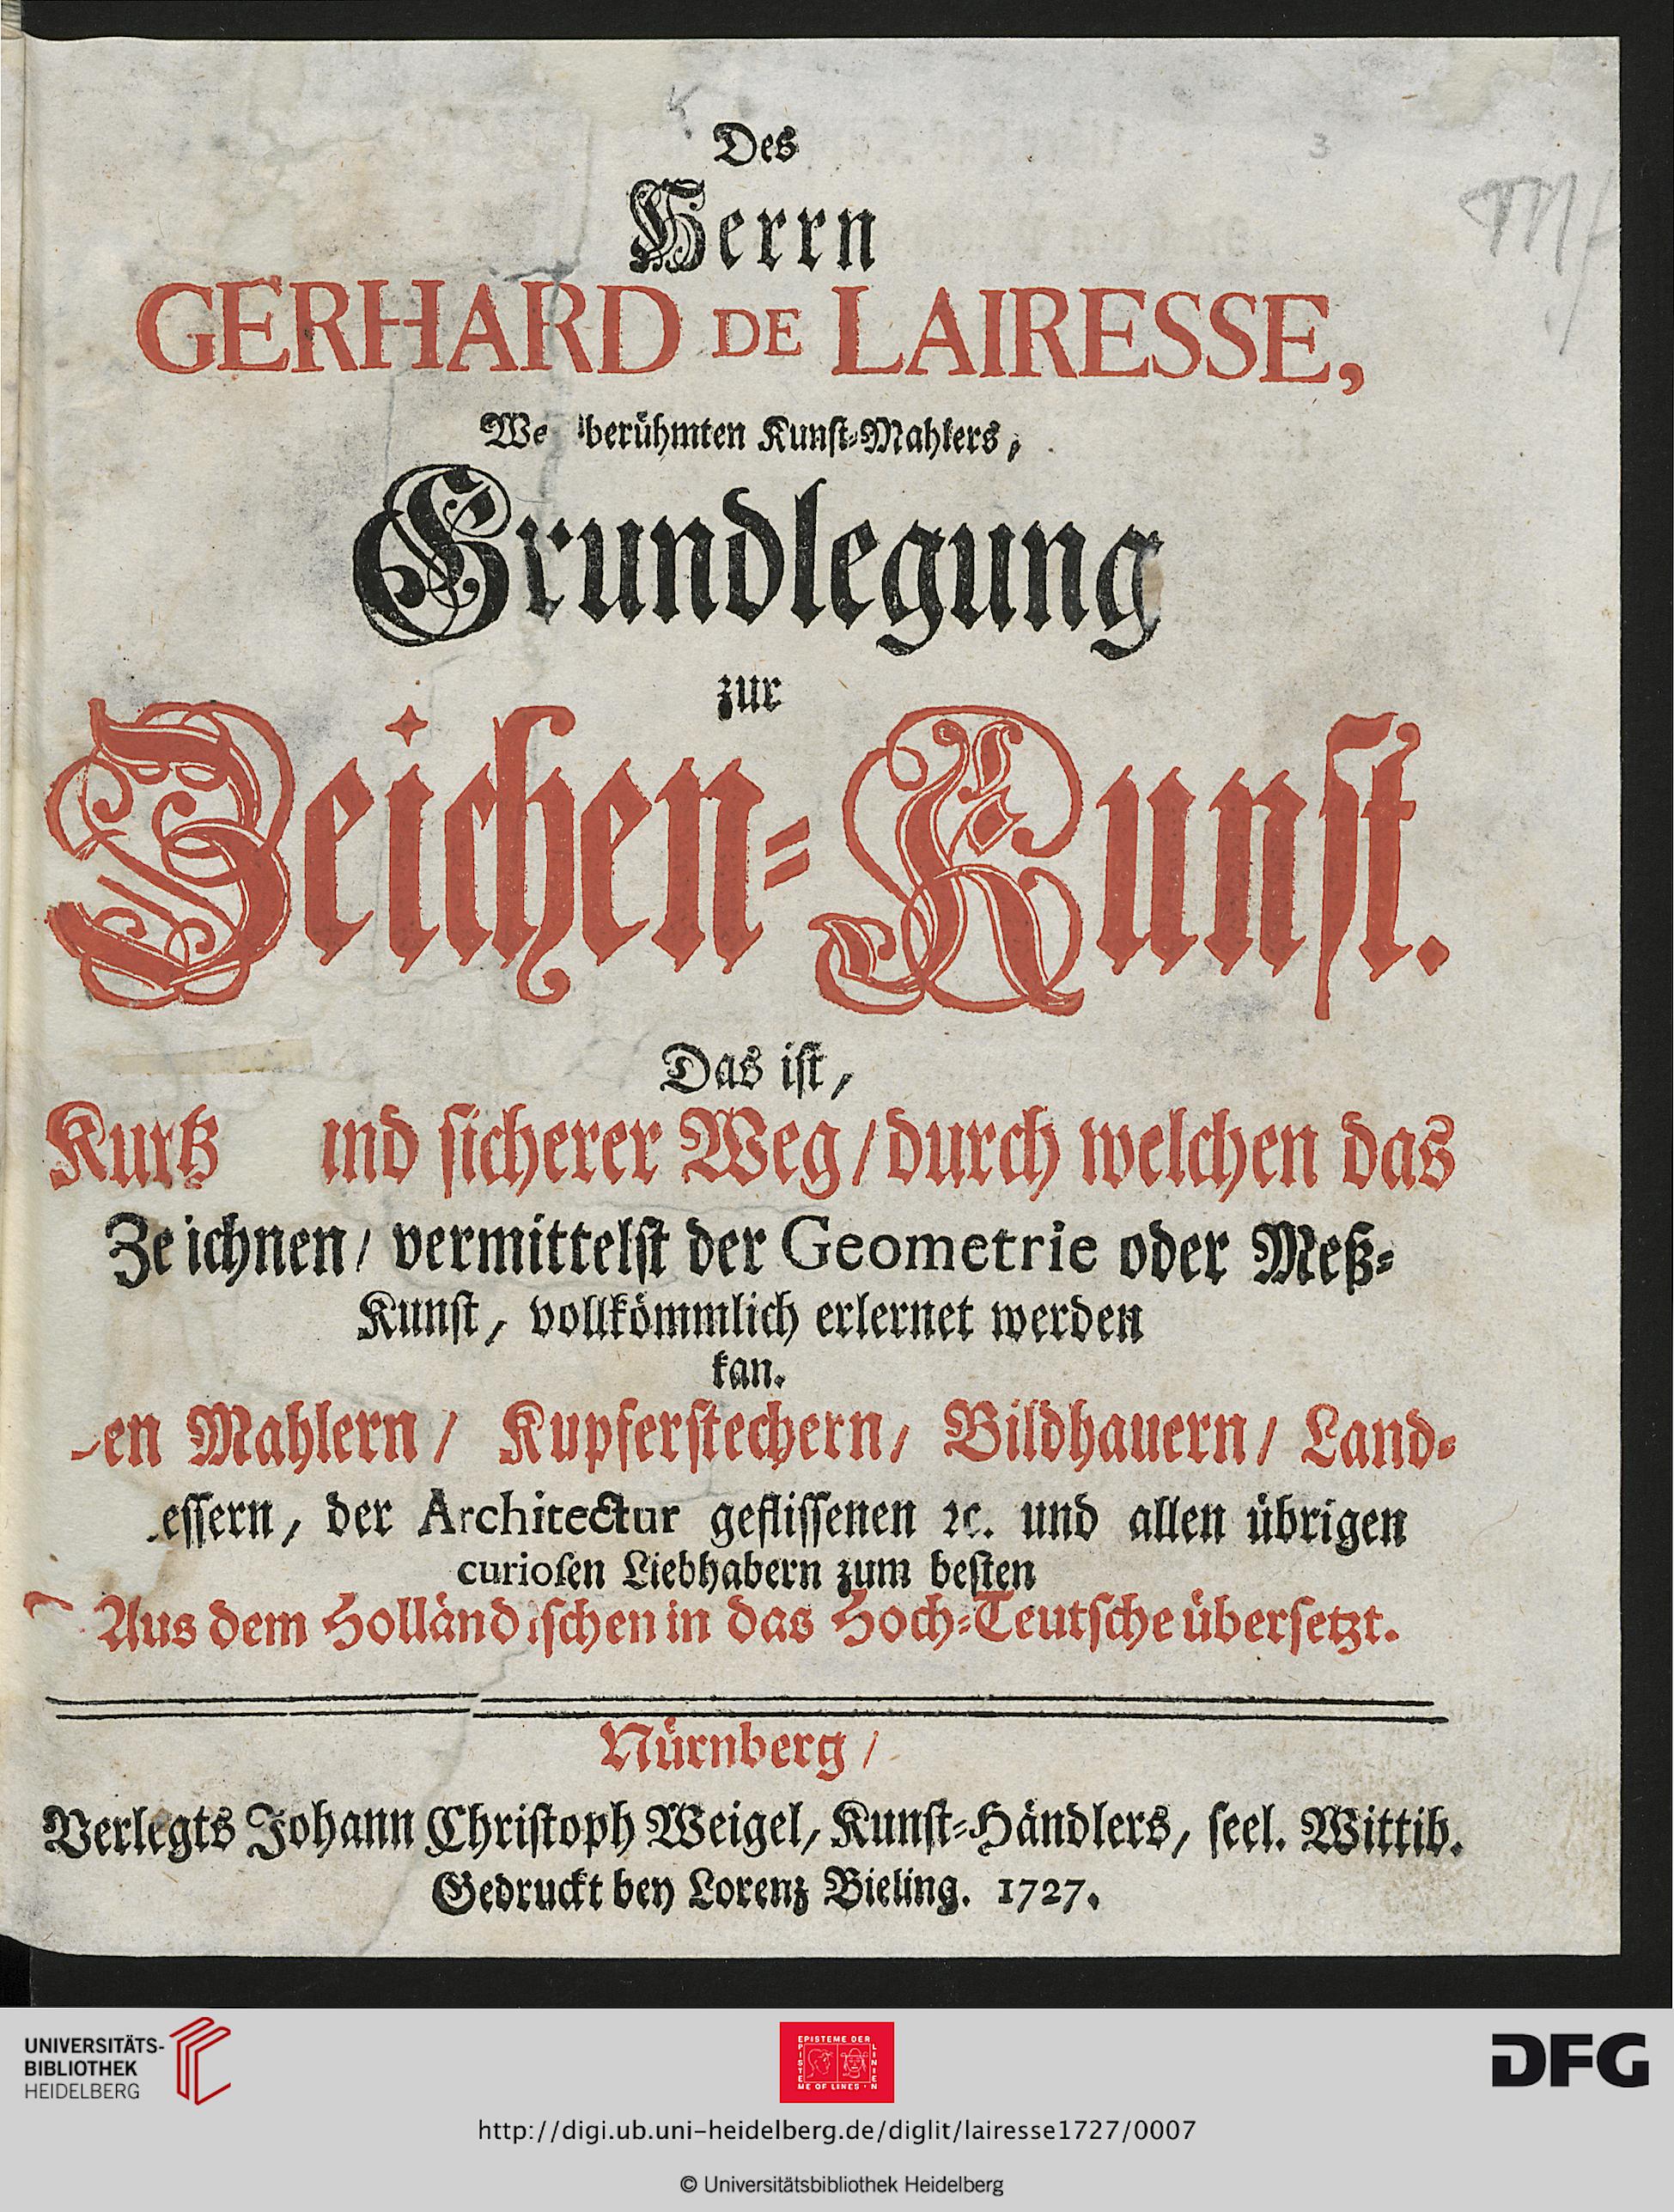 Des
Herrn
GERHARD DE LAIRESSE,
berühmten Kunst-Mahlers,
Grundlegung
zur
Zeichen-Kunst.
Das ist,
Kurtz und sicherer Weg / durch welchen das
Zeichnen / vermittelst der Geometrie oder Meß-
Kunst, vollkömmlich erlernet werden
kan.
en Mahlern / Kupferstechern / Bildhauern / Land-
essern, der Architectur geflissenen ꝛc. und allen übrigen
curiosen Liebhabern zum besten
Aus dem Holländischen in das Hoch-Teutsche übersetzt.
Nürnberg /
Verlegts Johann Christoph Weigel, Kunst-Händlers, seel. Wittib.
Gedruckt bey Lorenz Bieling. 1727.
3
UNIVERSITÄTS-
BIBLIOTHEK
HEIDELBERG
EPISTEME DER
LINIEN
EPISTE
ME OF LINES
DFG
http://digi.ub.uni-heidelberg.de/diglit/lairesse1727/0007
© Universitätsbibliothek Heidelberg